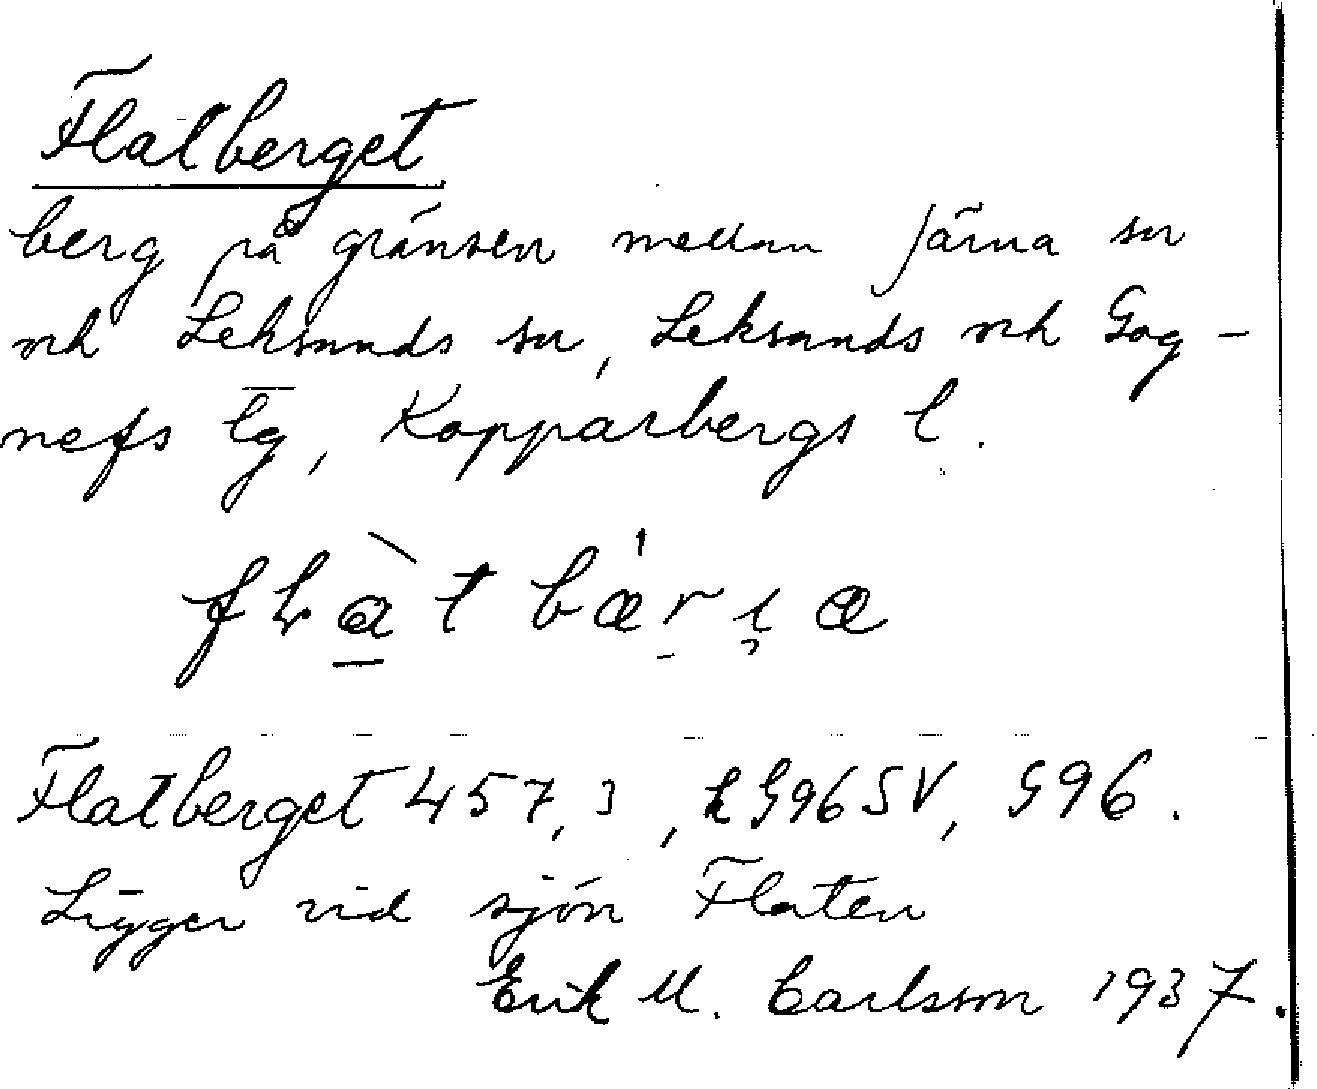 Flatberget
berg på gränsen mellan Järna sn
och Leksands sn, Leksands och Gag-
nefs tg, Kopparbergs l.
Flatberget 457,3, k G96SV, G96.
Ligger vid sjön Flaten
Erik M. Carlsson 1937.